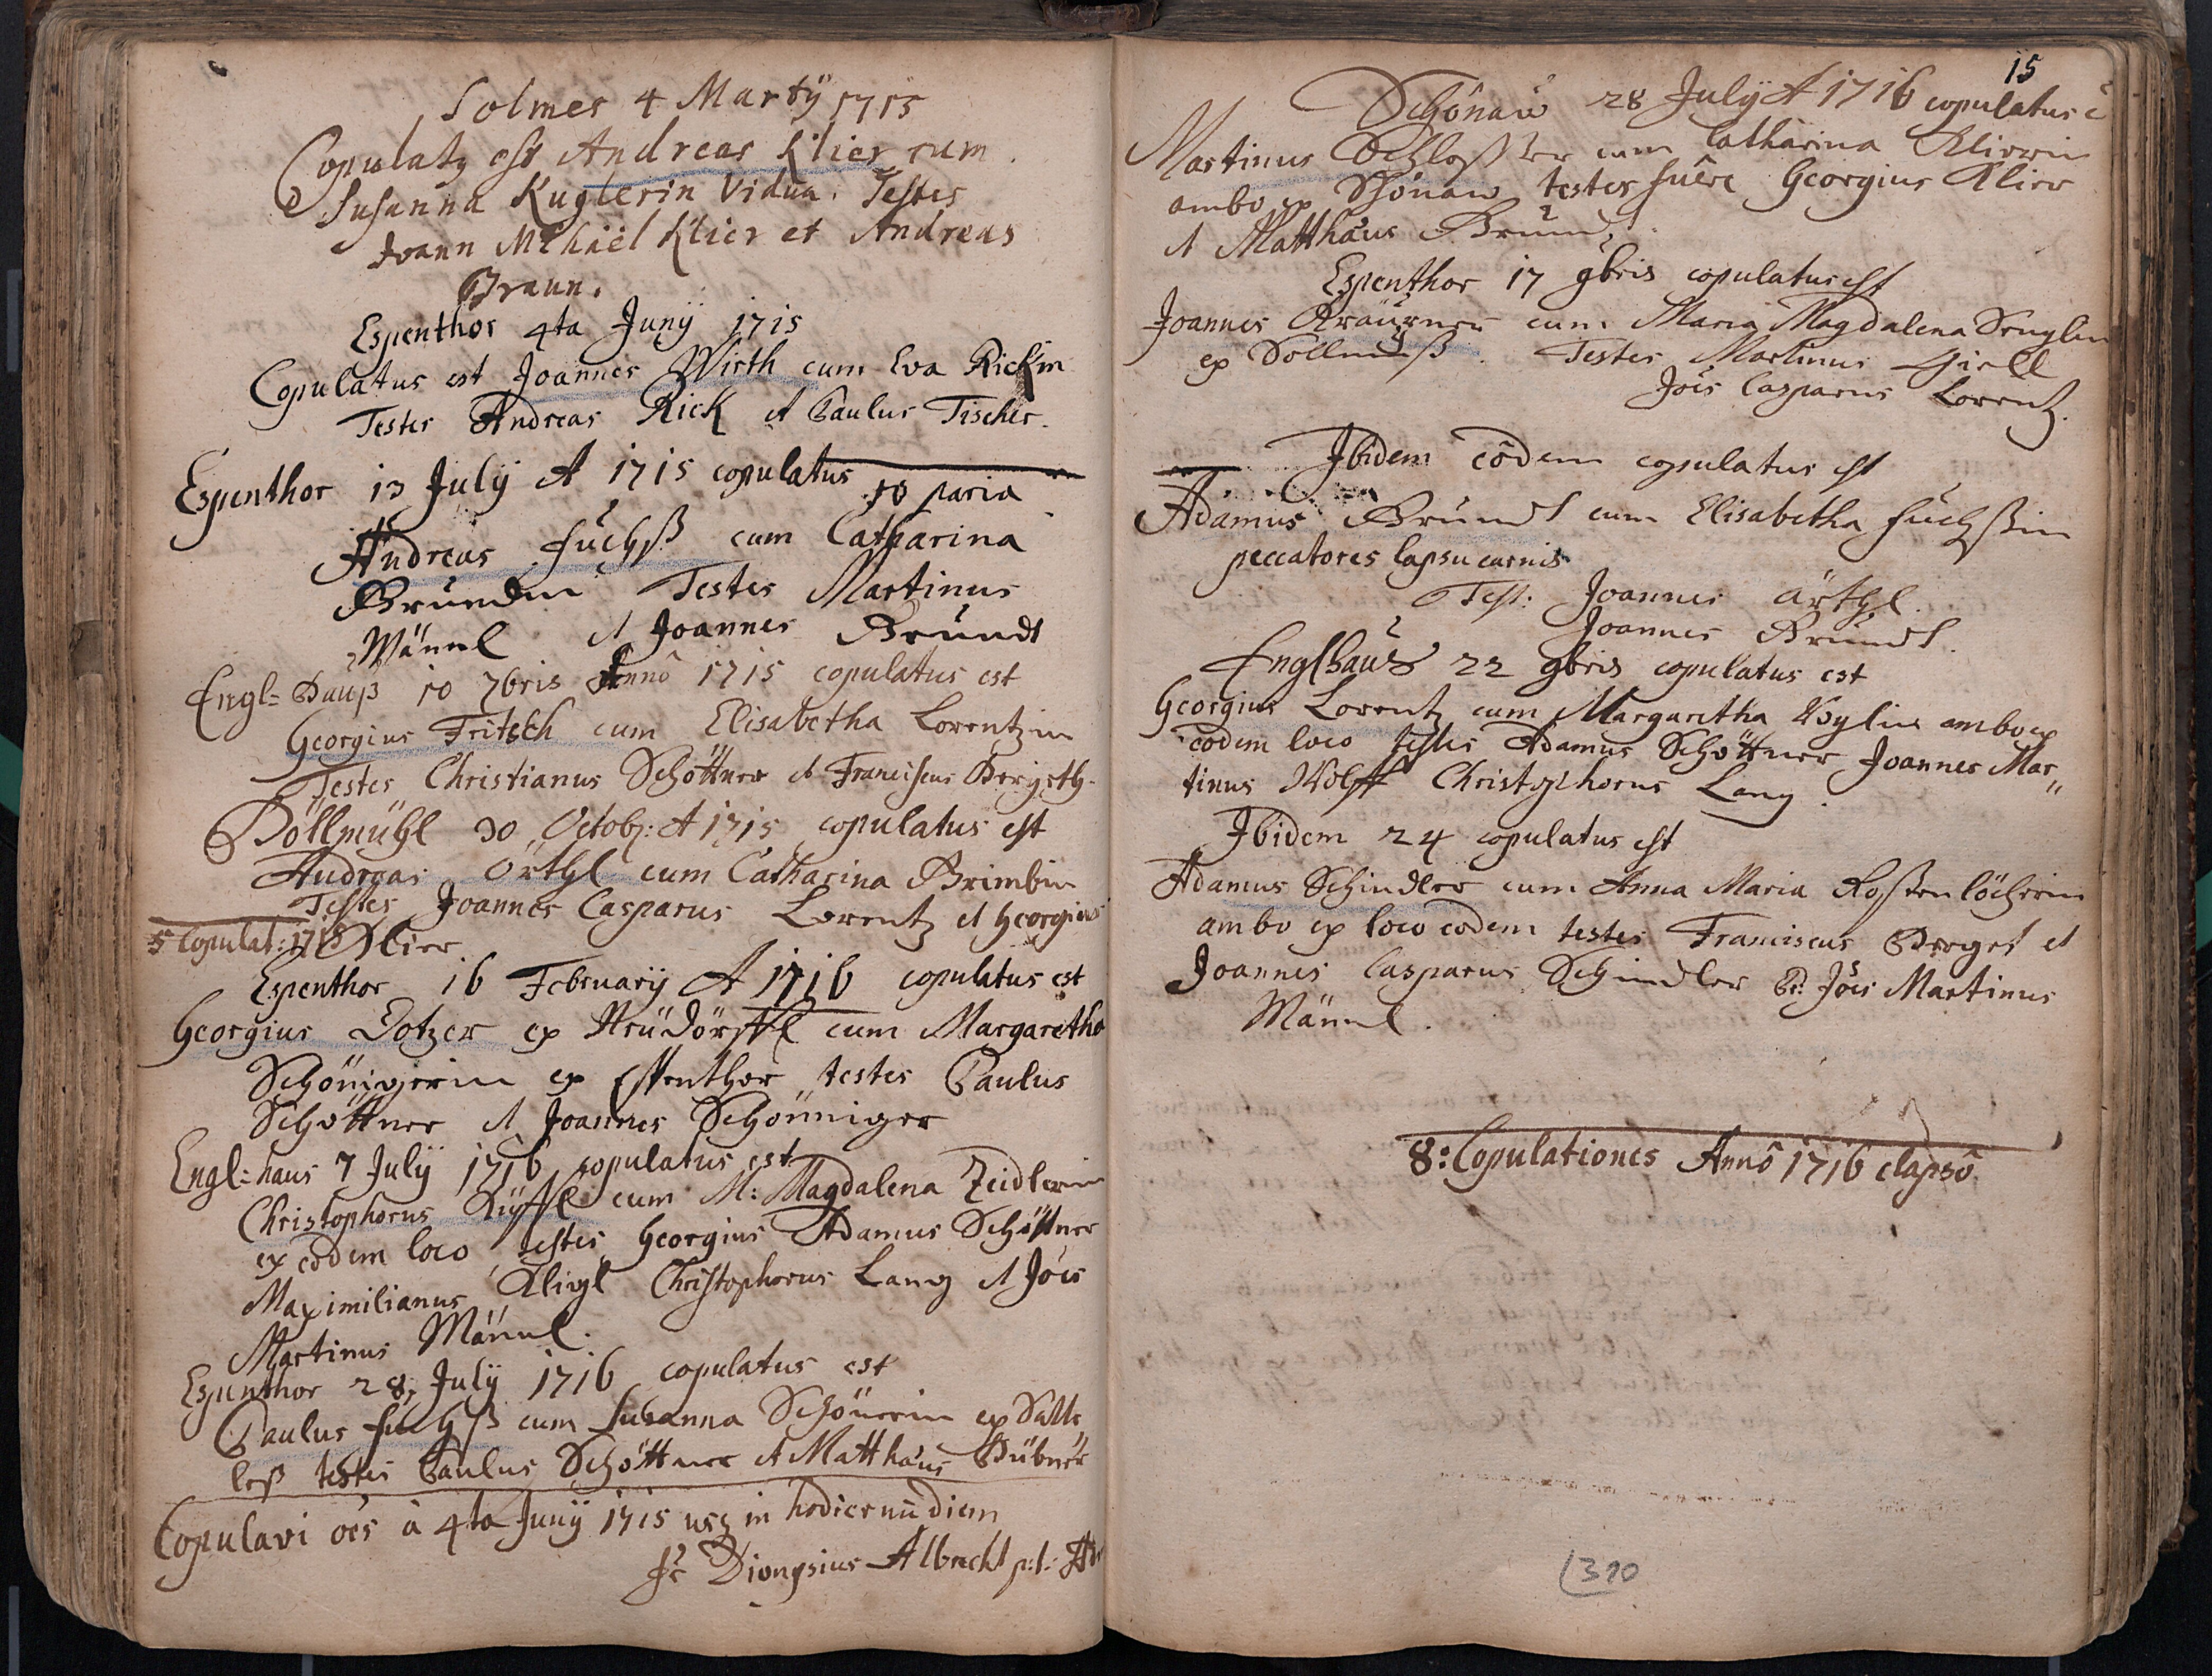 Solmes 4 Martÿ 1715
Copulatq est Andreas Klier cum
Susanna Kuglerin Vidua. Testes
Joann Michael Klier et Andreas
Braun.
Espenthor 4ta Junÿ 1715
Copulatus est Joannes Wirth cum Eva Rickin
Testes Andreas Rick et Paulus Tischer.
Espenthor 13 Julÿ A 1715 copulatus
10 paria
Andreas Fuchß cum Catharina
Brundin Testes Martinus
Männl et Joannes Brundt
Engl=Hauß 10 7bris Annô 1715 copulatus est
Georgius Fritsch cum Elisabetha Lorentzin
Testes Christianus Schöttner et Franciscus
Döllmühl 30 Octob: A 1715 copulatus est
Andreas Örthl cum Catharina Brimbin
Testes Joannes Casparus Lorentz et Georgius
5 Copulat: 1715 Klier
Espenthor 16 Februarÿ A 1716 copulatus est
Georgius Dotzer ex cum Margaretha
Schönigerin ex Espenthor testes Paulus
Schöttner et Joannes Schönniger
Engl=haus 7 Julÿ 1716 copulatus est
Christophorus cum M: Magdalena Zeidlerin
ex eodem loco testes Georgius Adamus Schöttner
Maximilianus Christophorus Lang et Jôes
Martinus Männl.
Espenthor 28. Julÿ 1716 copulatus est
Paulus Fuchß cum Susanna Schönerin ex Satte
leß testes Paulus Schöttner et Matthäus Hübner
Copulavi ôes à 4ta Junÿ 1715 usq in hodiernū diem
Fr Dionysius Albrecht p:t:
15
Schönau 28 Julÿ A 1716 copulatus ē
Martinus Schlosser cum Catharina Klierin
ambo ex Schönau testes fuêre Georgius Klier
et Matthäus Brund.
Espenthor 17 9bris copulatus est
Joannes cum Maria Magdalena
ex Sollmuß. Testes Martinus
Jôes Casparus Lorentz.
Ibidem eôdem copulatus est
Adamus Brundt cum Elisabetha Fuchßin
peccatores lapsu carnis
Test: Joannes örthl.
Joannes Brundt.
Englhauß 22 9bris copulatus est
Georgius Lorentz cum Margaretha ambo ex
eodem loco testes Adamus Schöttner Joannes Mar„
tinus Wolff Christophorus Lang.
Ibidem 24 copulatus est
Adamus Schindler cum Anna Maria Roßenlöcherin
ambo ex loco eodem testes Franciscus et
Joannes Casparus Schindler et Jôes Martinus
Männl.
8: Copulationes Annô 1716 elapsô
310